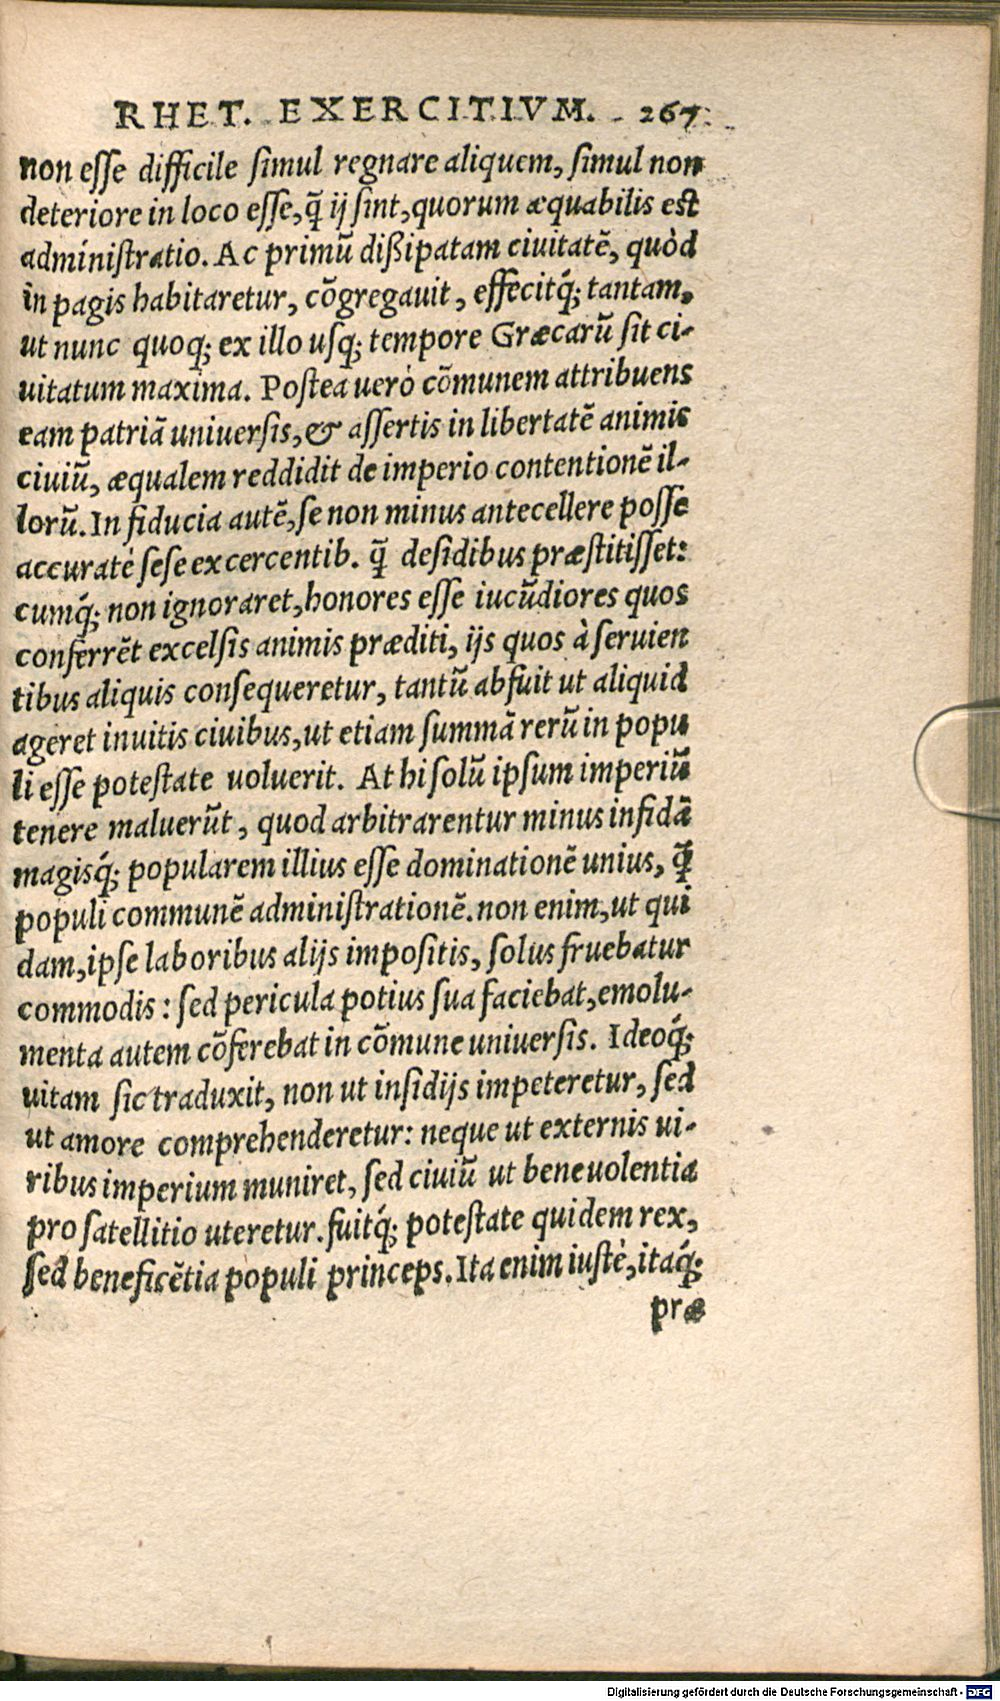 RHET. EXERCITIVM. 267
non esse difficile simul regnare aliquem, simul non
deteriore in loco esse, q̃ ij sint, quorum æquabilis est
administratio. Ac primũ dißipatam ciuitatẽ, quòd
in pagis habitaretur, cõgregauit, effecitq́; tantam,
ut nunc quoq; ex illo usq; tempore Græcarũ sit ci-
uitatum maxima. Postea uerò cõmunem attribuens
eam patriã uniuersis, & assertis in libertatẽ animis
ciuiũ, æqualem reddidit de imperio contentionẽ il-
lorũ. In fiducia autẽ, se non minus antecellere posse
accuratè sese excercentib. q̃ desidibus præstitisset:
cumq́; non ignoraret, honores esse iucũdiores quos
conferrẽt excelsis animis præditi, ijs quos à seruien
tibus aliquis consequeretur, tantũ abfuit ut aliquid
ageret inuitis ciuibus, ut etiam summã rerũ in popu
li esse potestate uoluerit. At hi solũ ipsum imperiũ
tenere maluerũt, quod arbitrarentur minus infidã
magisq́; popularem illius esse dominationẽ unius, q̃
populi communẽ administrationẽ. non enim, ut qui
dam, ipse laboribus alijs impositis, solus fruebatur
commodis: sed pericula potius sua faciebat, emolu-
menta autem cõferebat in cõmune uniuersis. Ideoq́;
uitam sic traduxit, non ut insidijs impeteretur, sed
ut amore comprehenderetur: neque ut externis ui-
ribus imperium muniret, sed ciuiũ ut beneuolentia
pro satellitio uteretur. fuitq́; potestate quidem rex,
sed beneficẽtia populi princeps. Ita enim iustè, itaq́;
præ
Digitalisierung gefördert durch die Deutsche Forschungsgemeinschaft - DFG